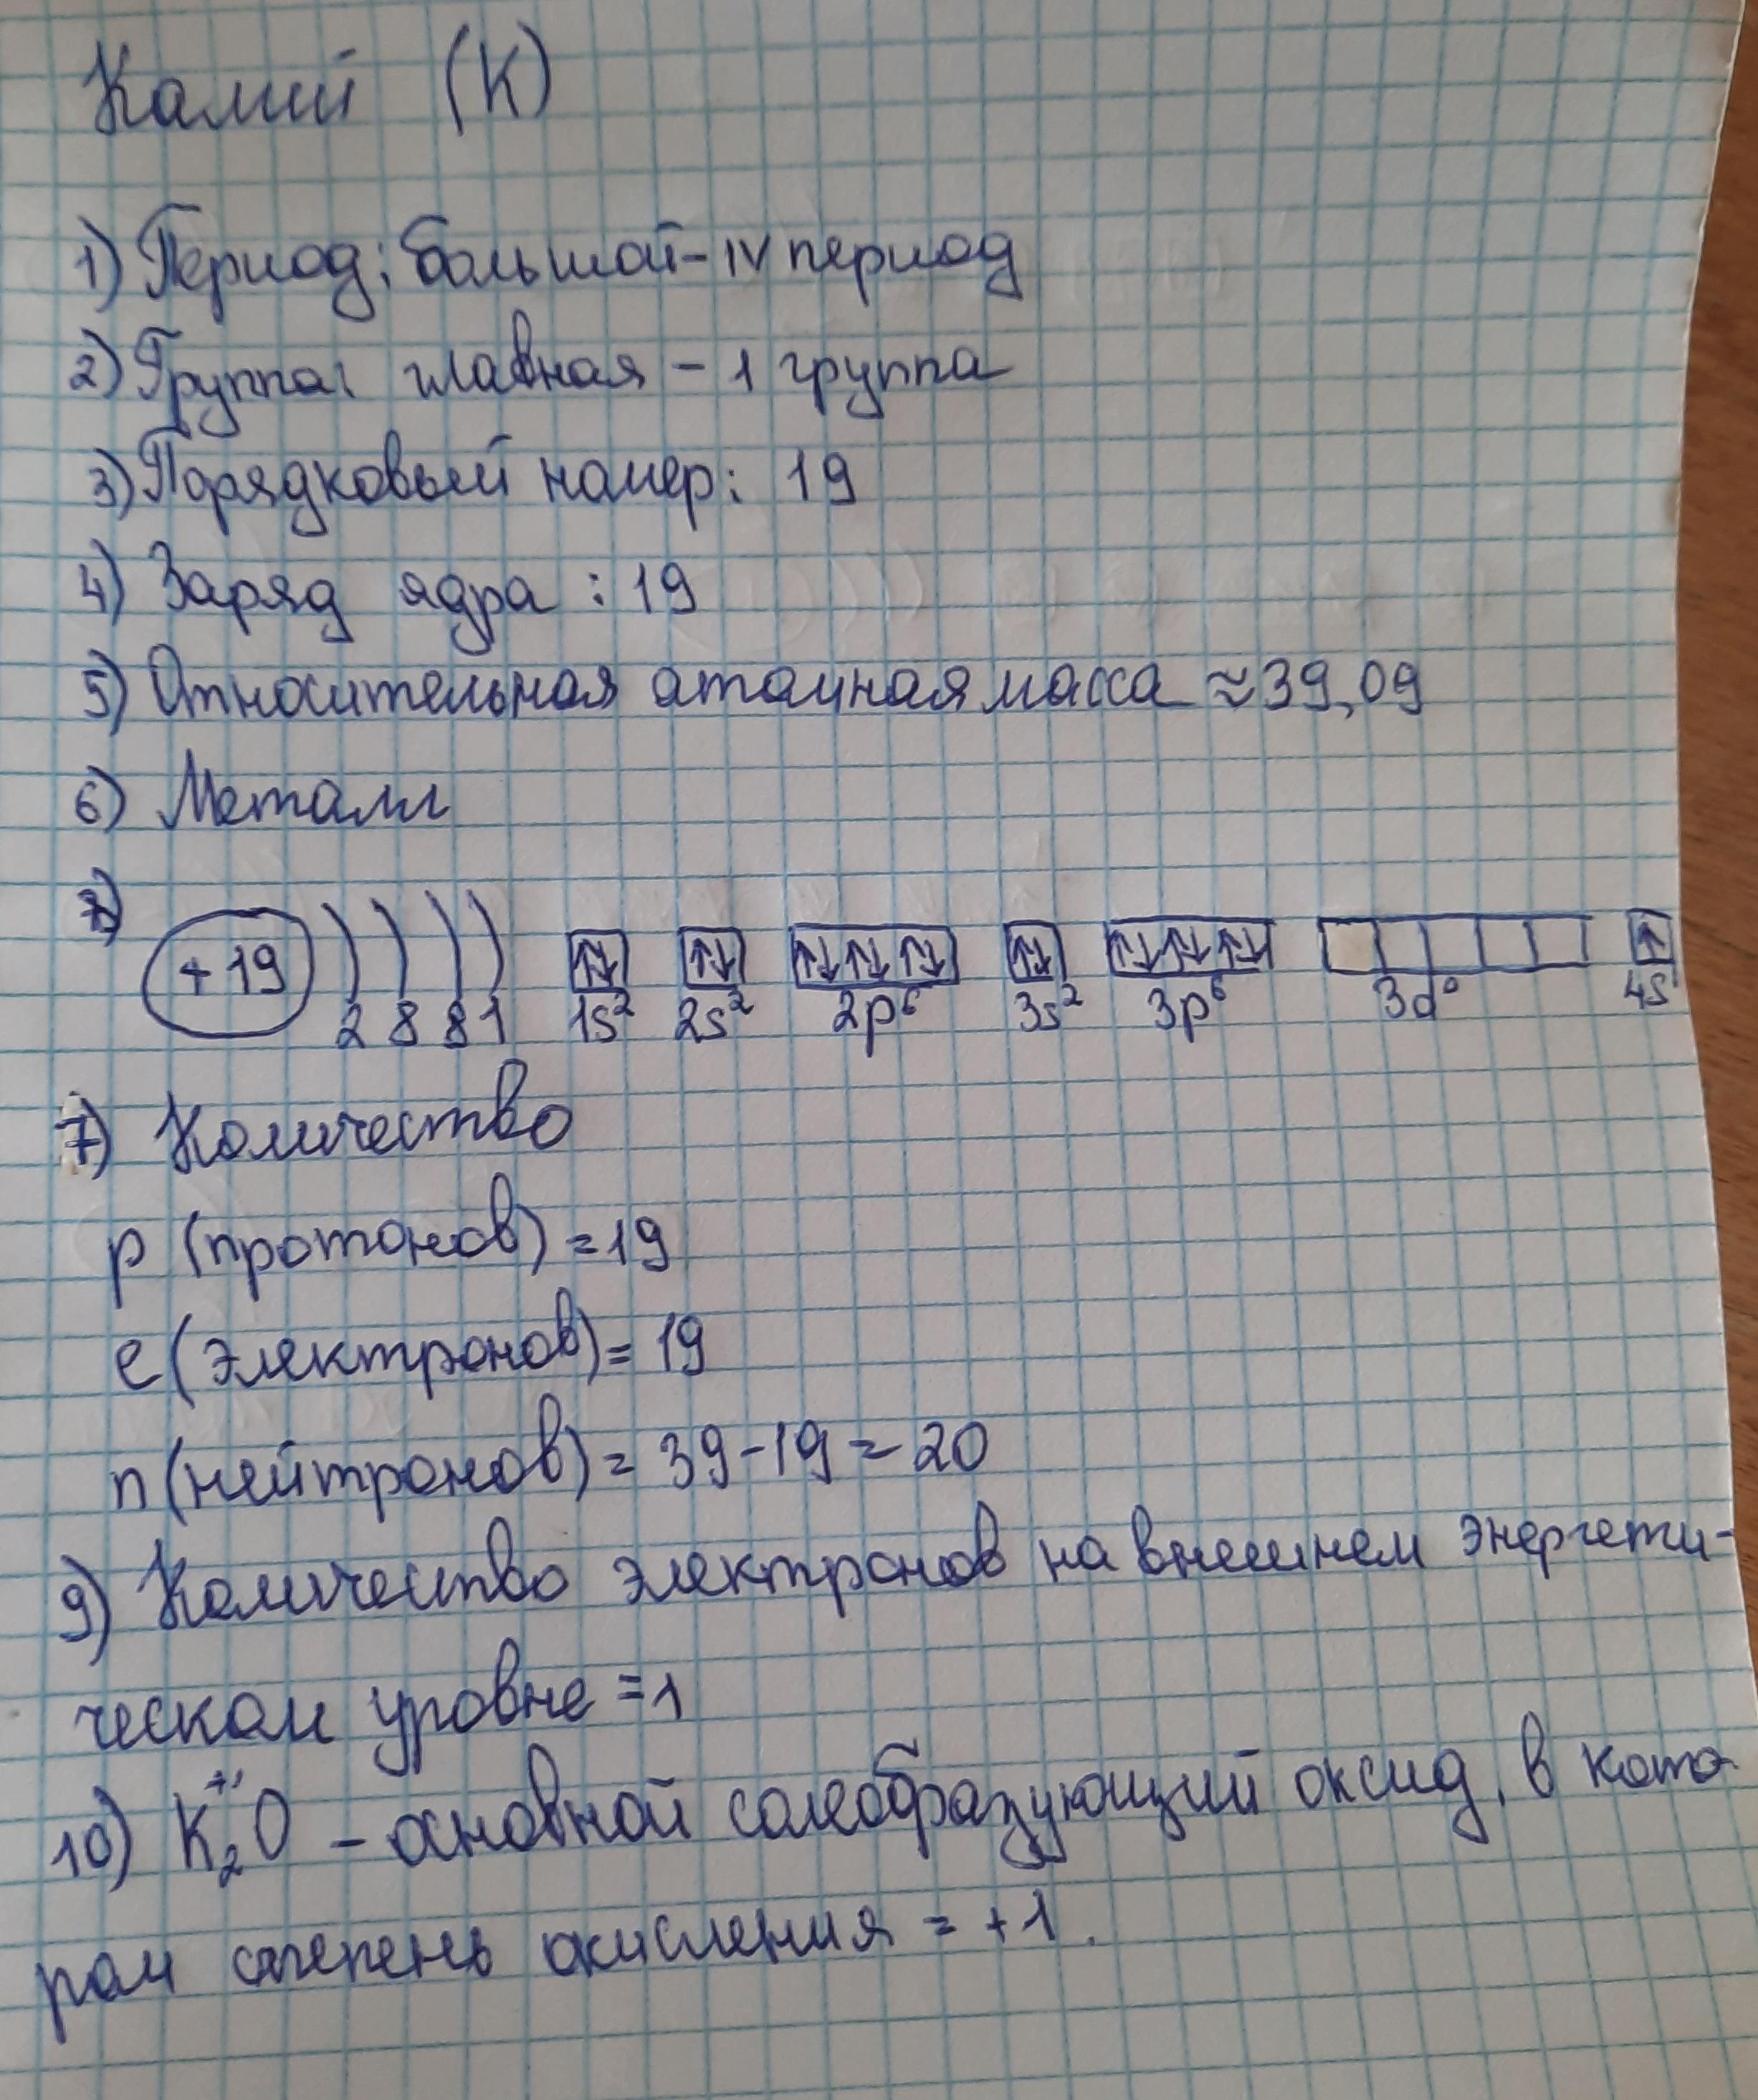 Калий (K)
1) Период: большой - IV период
2) Группа: главная - 1 группа
3) Порядковый номер: 19
4) Заряд ядра : 19
5) Относительная атомная масса ≈ 39,09
6) Металл
8) +19 ) ) ) ) ↑↓ ↑↓ ↑↓ ↑↓ ↑↓ ↑↓ ↑↓ ↑↓ ↑↓ ↑
2 8 8 1 1s² 2s² 2p⁶ 3s² 3p⁶ 3d⁰ 4s¹
7) Количество
p (протонов) = 19
e (электронов) = 19
n (нейтронов) = 39 - 19 = 20
9) Количество электронов на внешнем энергети-
ческом уровне = 1
10) K₂⁺¹O - основной солеобразующий оксид, в кото-
ром степень окисления = +1.